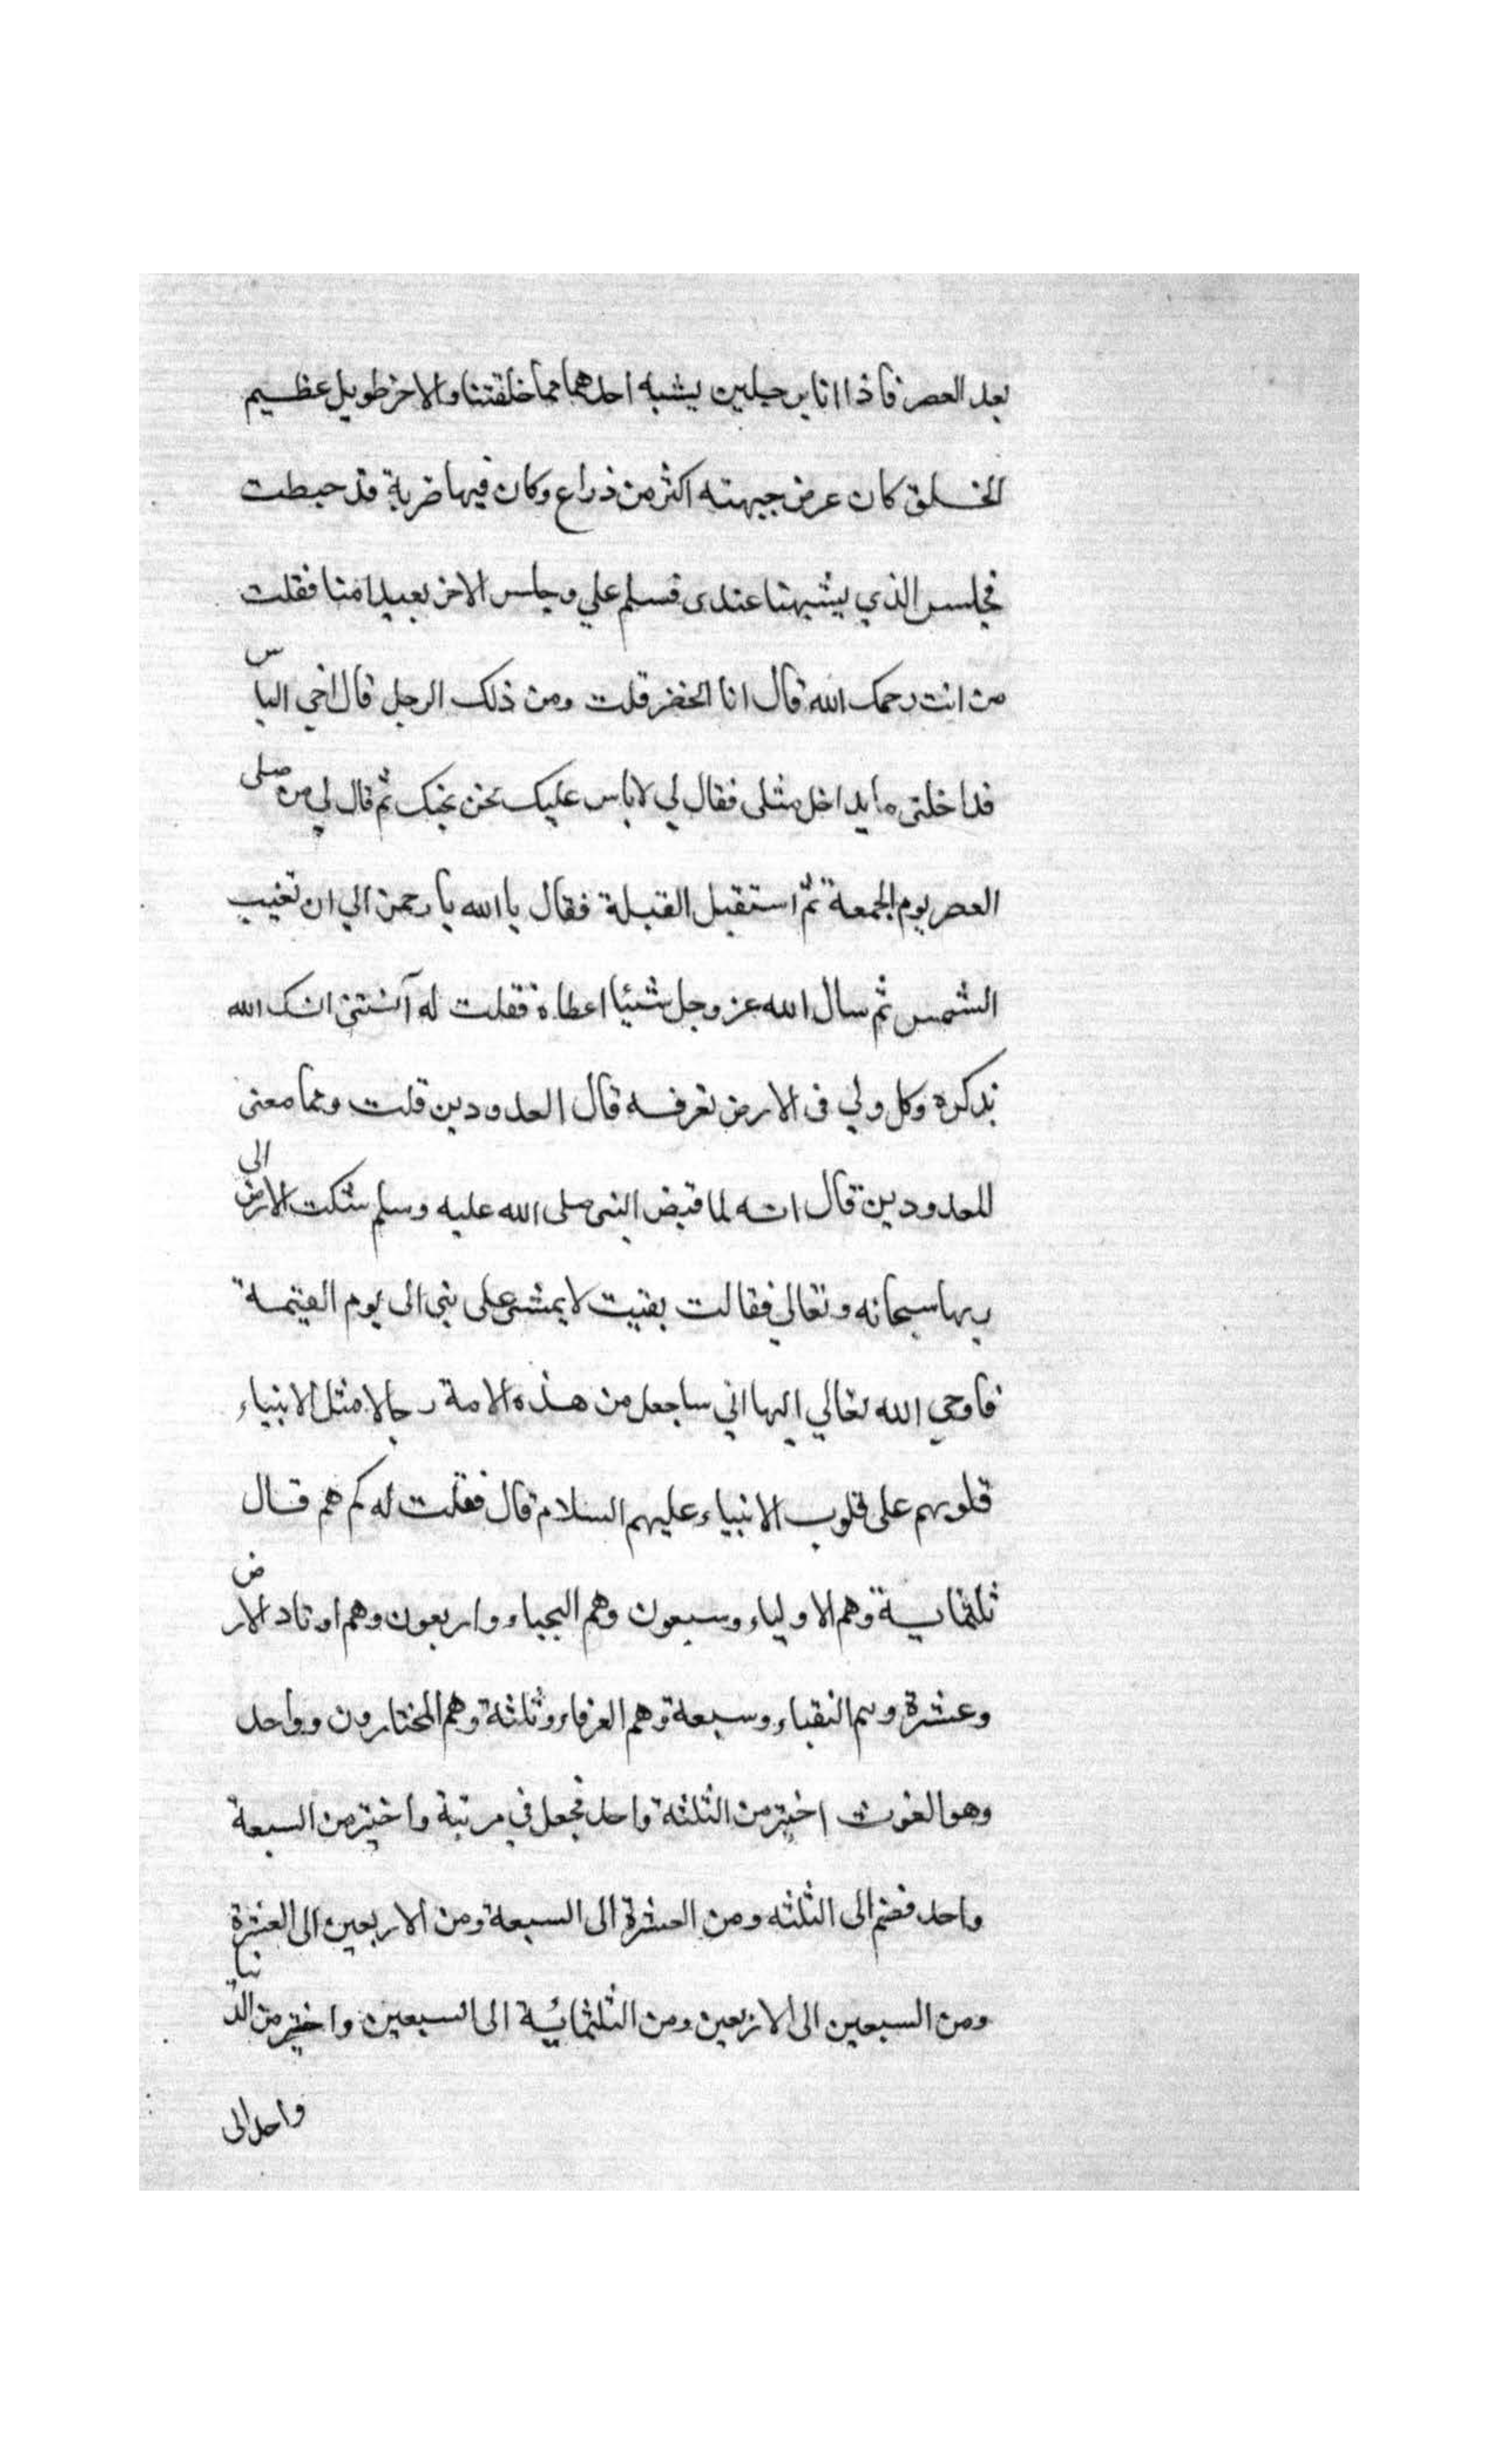 بعد العصر فاذا انا برجلين يشبه احدهما مما خلقتنا والاخر طويل عظيم
الخلق كان عرض جبهته اكثر من ذراع وكان فيها ضربة قد خيطت
فجلس الذي يشبهنا عندى فسلم علي وجلس الاخر بعيدا منا فقلت
من انت رحمك الله قال انا الخضر قلت ومن ذلك الرجل قال اخي الياس
فداخلنى ما يداخل مثلى فقال لي لا باس عليك نحن نحبك ثم قال لي من صلى
العصر يوم الجمعة ثم استقبل القبلة فقال يا الله يا رحمن الي ان تغيب
الشمس ثم سال الله عز وجل شيئا اعطاه فقلت له آنستنى انسك الله
بذكره وكل ولي فى الارض تعرفه قال المعدودين قلت وما معنى
المعدودين قال انه لما قبض النبى صلى الله عليه وسلم شكت الارض الى
ربها سبحانه وتعالي فقالت بقيت لا يمشى على نبي الى يوم القيمة
فاوحي الله تعالي اليها اني ساجعل من هذه الامة رجالا مثل الانبياء
قلوبهم على قلوب الانبياء عليهم السلام قال فقلت له كم هم قال
ثلثماية وهم الاولياء وسبعون وهم النجباء واربعون وهم اوتاد الارض
وعشرة وهم النقباء وسبعة وهم العرفاء وثلثة وهم المختارون وواحد
وهو الغوث اختير من الثلثة واحد فجعل في مرتبة واختير من السبعة
واحد فضم الى الثلثه ومن العشرة الى السبعة ومن الاربعين الى العشرة
ومن السبعين الى الاربعين ومن الثلثمائية الى السبعين واختير من الدنيا
واحد الى